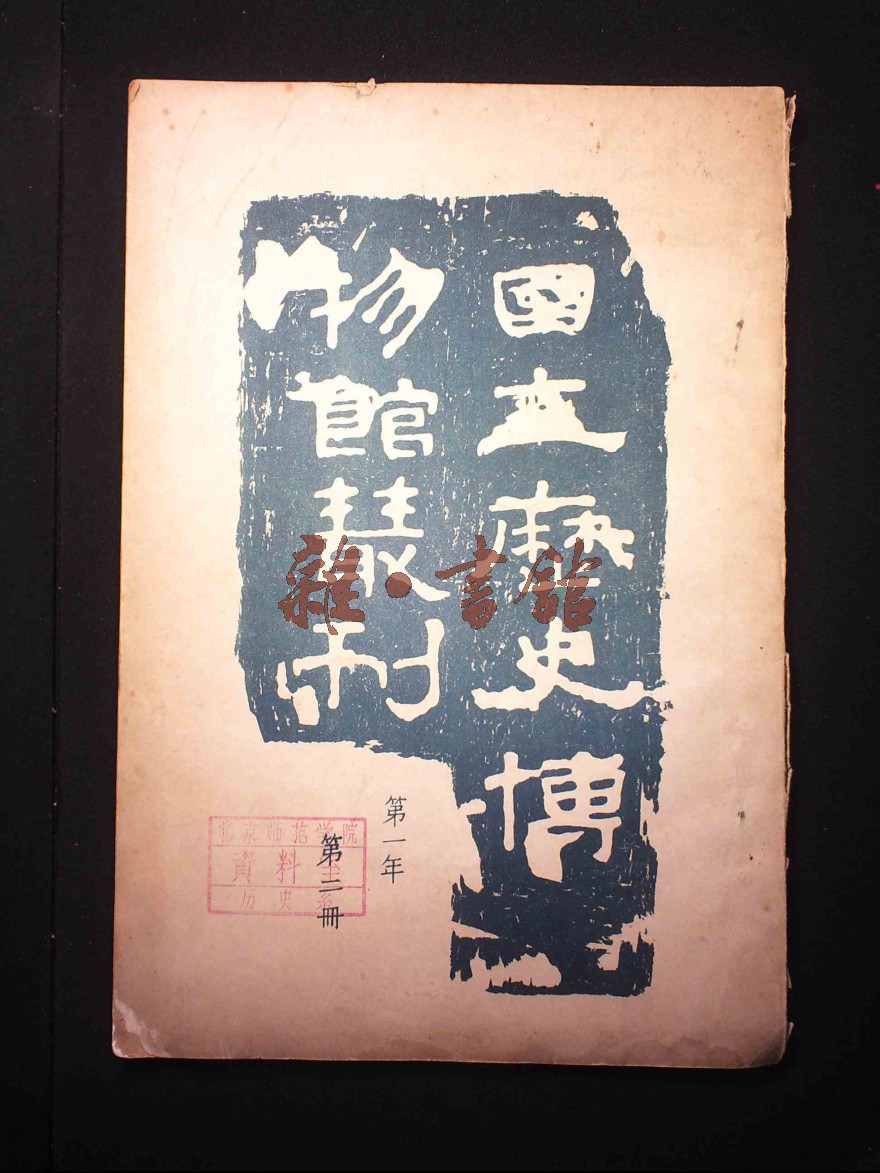 國立歷史博
物館叢刊
第一年
第三冊
北京师范学院
資料室
历史系
雜·書館